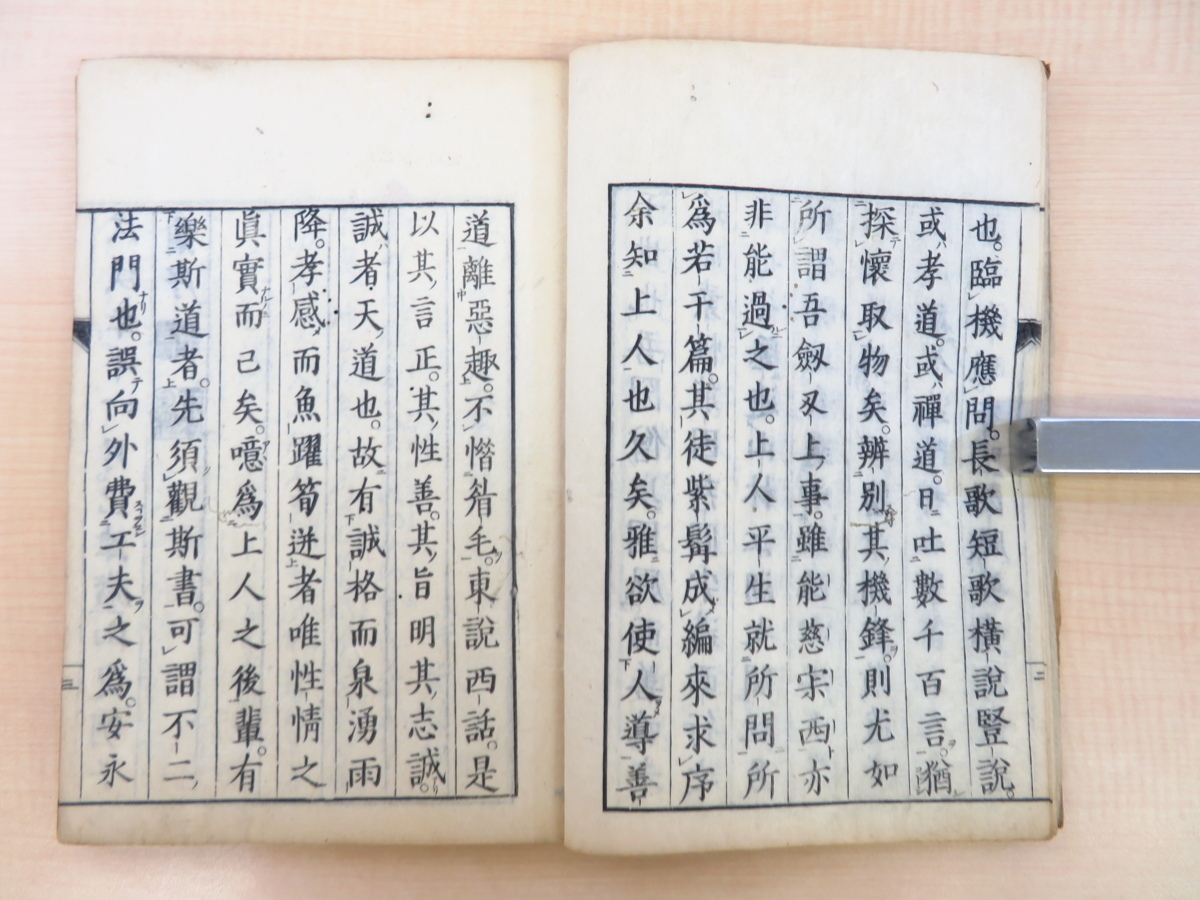 也。臨機應問。長歌短歌橫說豎說。
或孝道。或禪道。日吐數千百言。猶
探懷取物矣。辨別其機鋒。則尤如
所謂吾劔刄上事。雖能慈宗西亦
非能過之也。上人平生就所問所
爲若干篇。其徒紫髯成編來求序
余知上人也久矣。雅欲使人導善
道離惡趣。不㦧眉毛。東說西話。是
以其言正。其性善。其旨明其志誠。
誠者天道也。故有誠格而泉湧雨
降。孝感而魚躍筍迸者唯性情之
眞實而已矣。噫爲上人之後輩。有
樂斯道者。先須觀斯書。可謂不二
法門也。誤向外費工夫之爲。安永
二
三